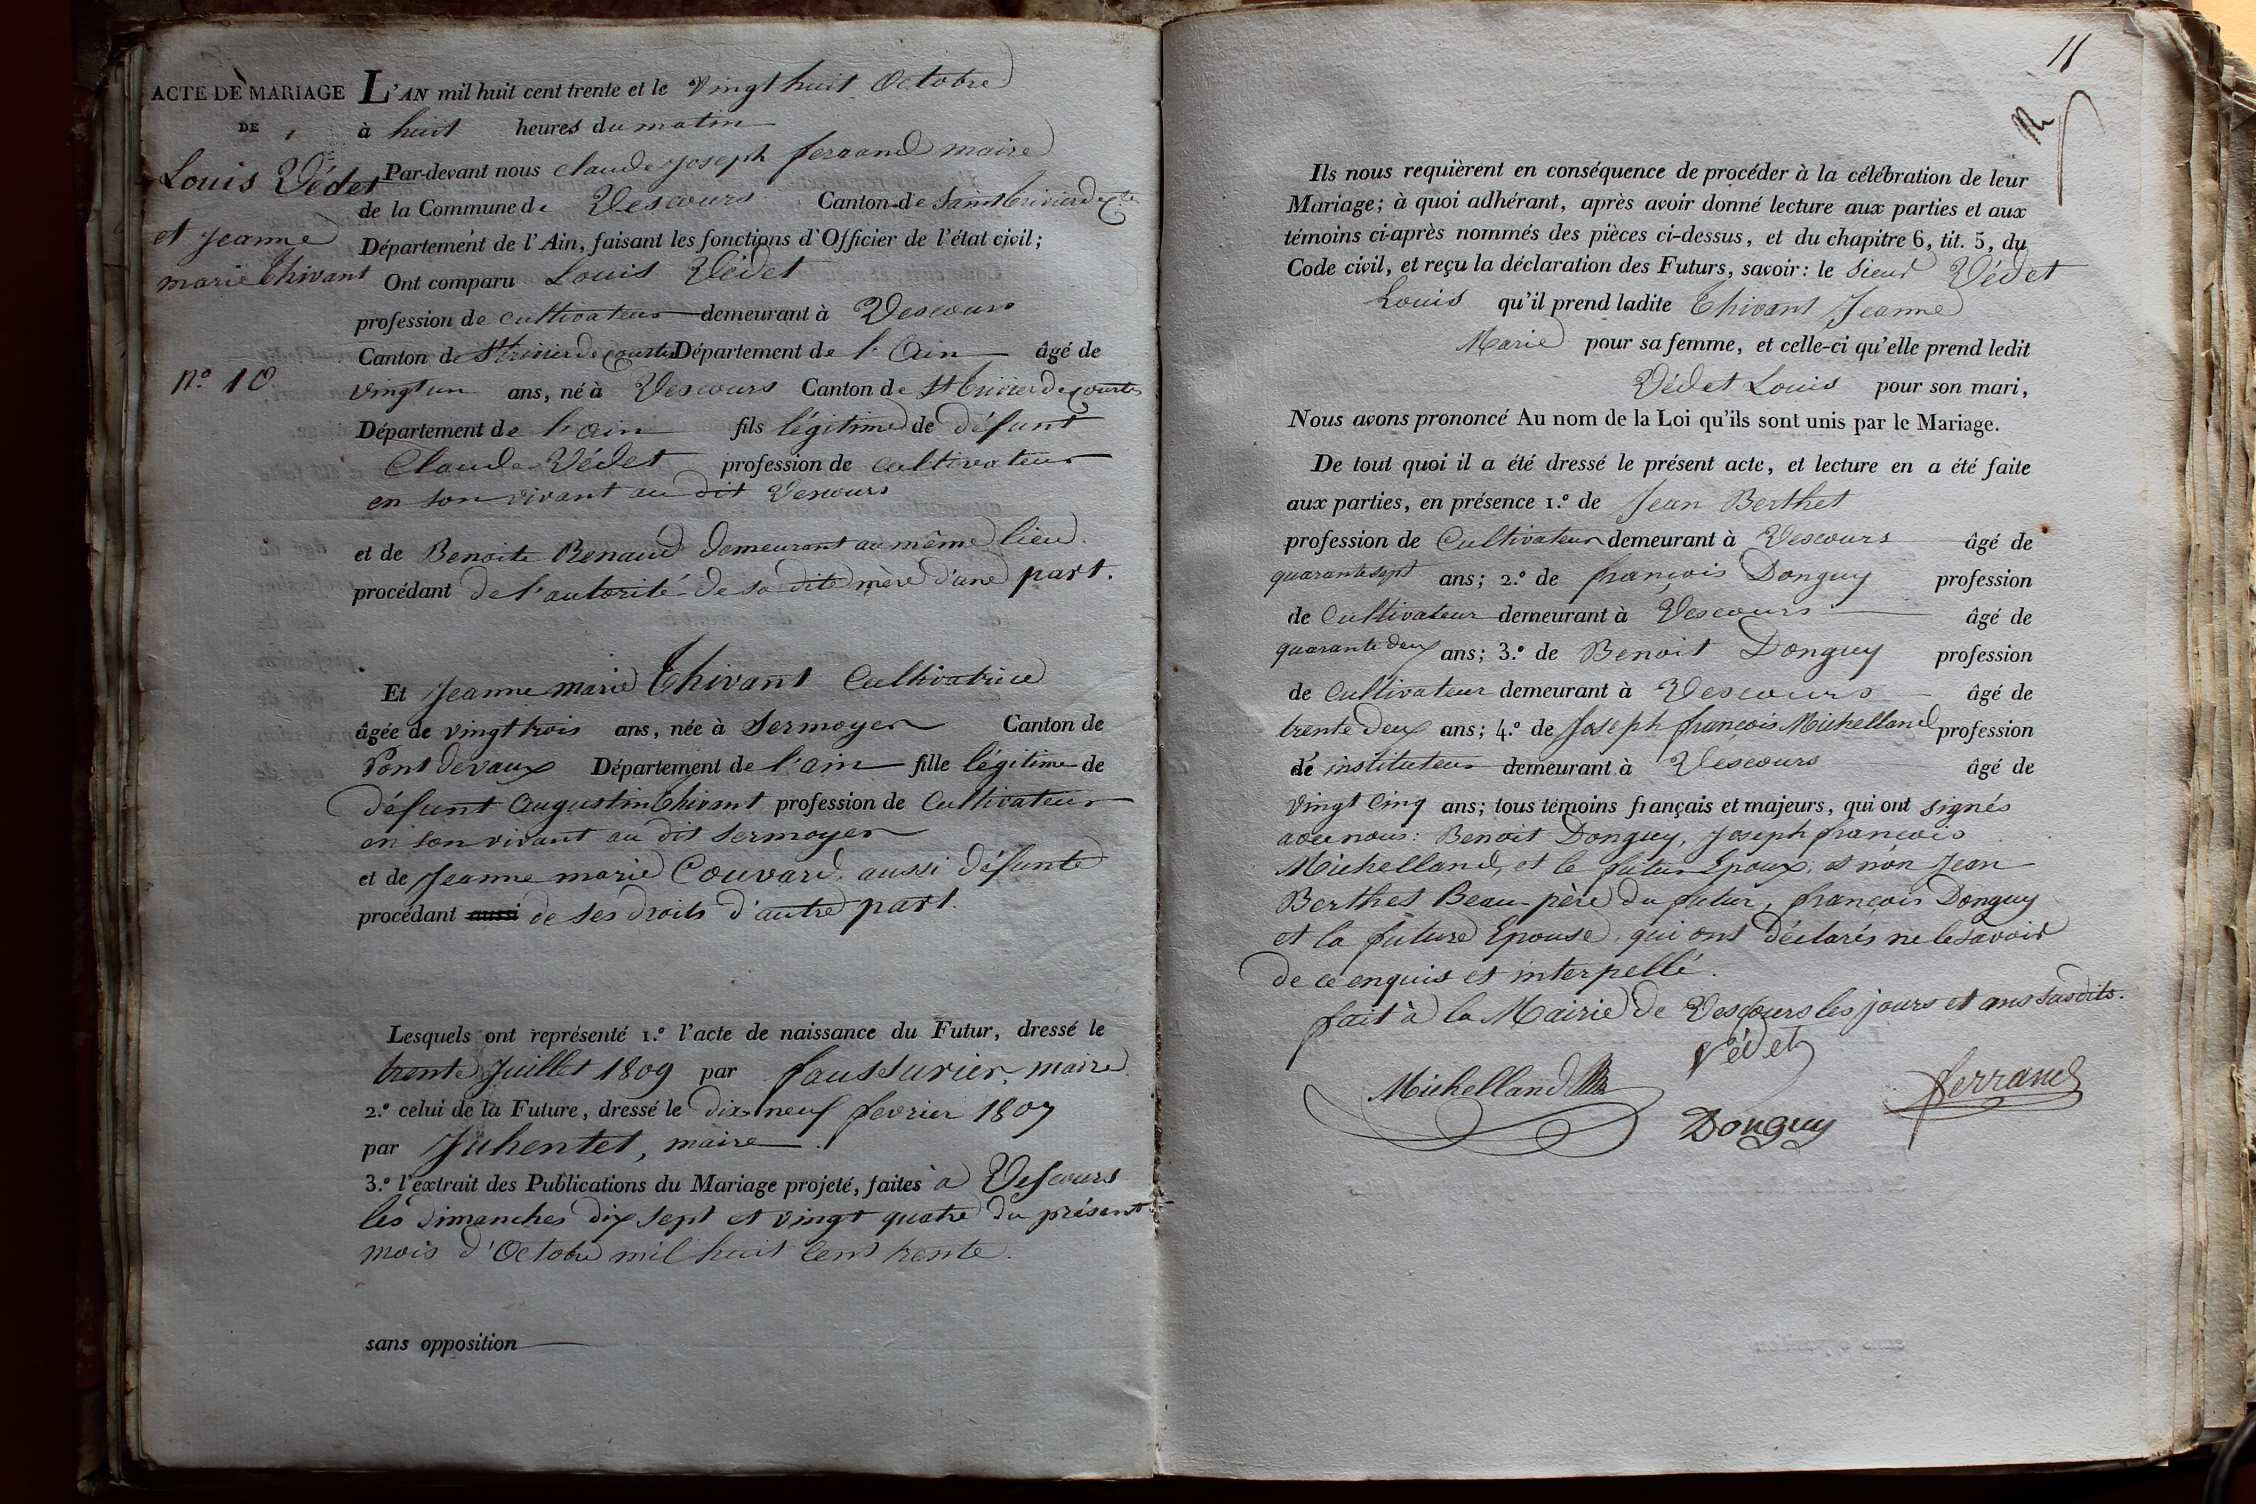 ACTE DE MARIAGE
DE
Louis Védet
et Jeanne
marie Thivant
n.º 10
L'AN mil huit cent trente et le vingt huit Octobre
à huit heures du matin
Par-devant nous claude joseph ferrand maire
de la Commune de Vescours Canton de Saint trivier de
Département de l'Ain, faisant les fonctions d'Officier de l'état civil;
Ont comparu Louis Védet
profession de cultivateur demeurant à Vescours
Canton de St trivier de courtes Département de l'Ain âgé de
vingt un ans, né à Vescours Canton de St Trivier de courtes
Département de l'ain fils légitime de défunt
Claude Védet profession de cultivateur
en son vivant au dit Vescours
et de Benoite Renaud demeurant au même lieu.
procédant de l'autorité de sa dite mère d'une part.
Et Jeanne marie Thivant Cultivatrice
âgée de vingt trois ans, née à Sermoyer Canton de
Pont devaux Département de l'ain fille légitime de
défunt Augustin Thivant profession de Cultivateur
en son vivant au dit Sermoyer
et de Jeanne marie Couvard, aussi défunte
procédant aussi de ses droits d'autre part.
Lesquels ont représenté 1.º l'acte de naissance du Futur, dressé le
trente Juillet 1809 par faussurier, maire
2.º celui de la Future, dressé le dix-neuf fevrier 1807
par Juhentet, maire
3.º l'extrait des Publications du Mariage projeté, faites à Vescours
les dimanches dix sept et vingt quatre du présent
mois d'Octobre mil huit cent trente.
sans opposition
11
Ils nous requièrent en conséquence de procéder à la célébration de leur
Mariage; à quoi adhérant, après avoir donné lecture aux parties et aux
témoins ci-après nommés des pièces ci-dessus, et du chapitre 6, tit. 5, du
Code civil, et reçu la déclaration des Futurs, savoir: le sieur Védet
Louis qu'il prend ladite Thivant Jeanne
Marie pour sa femme, et celle-ci qu'elle prend ledit
Védet Louis pour son mari,
Nous avons prononcé Au nom de la Loi qu'ils sont unis par le Mariage.
De tout quoi il a été dressé le présent acte, et lecture en a été faite
aux parties, en présence 1.º de Jean Berthet
profession de Cultivateur demeurant à Vescours âgé de
quarante sept ans; 2.º de françois Donguy profession
de Cultivateur demeurant à Vescours âgé de
quarante deux ans; 3.º de Benoit Donguy profession
de Cultivateur demeurant à Vescours âgé de
trente deux ans; 4.º de Joseph françois Michelland profession
de instituteur demeurant à Vescours âgé de
vingt cinq ans; tous témoins français et majeurs, qui ont signés
avec nous: Benoit Donguy, Joseph françois
Michelland, et le futur Epoux, et non Jean
Berthet Beau-père du futur, françois Donguy
et la future Epouse, qui ont déclarés ne le savoir
de ce enquis et interpellé.
fait à la Mairie de Vescours les jours et ans susdits.
Védet
Michelland
Donguy
ferrand